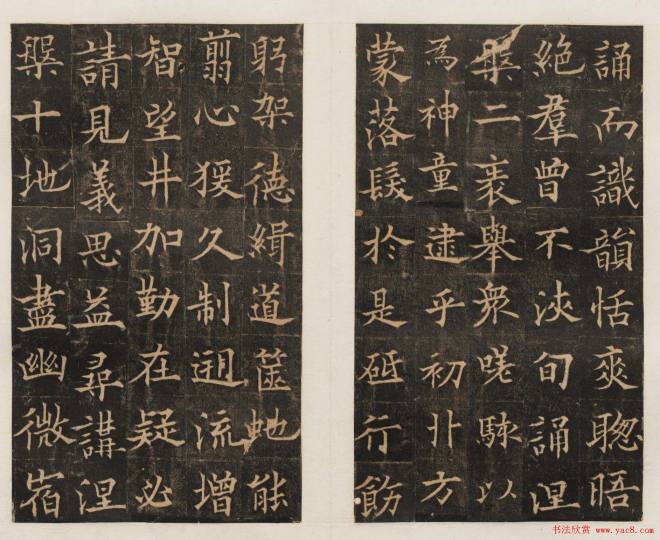 誦而識韻恬爽聦晤
絕羣曾不浹旬誦涅
槃二袠舉衆嗟駭以
為神童逮乎初丱方
蒙落髮於是砥行飭
躬架德緝道篋虵能
翦心猨久制遡流增
智望井加勤在疑必
請見義思益尋講涅
槃十地洞盡幽微宿
书法欣赏 www.yac8.com